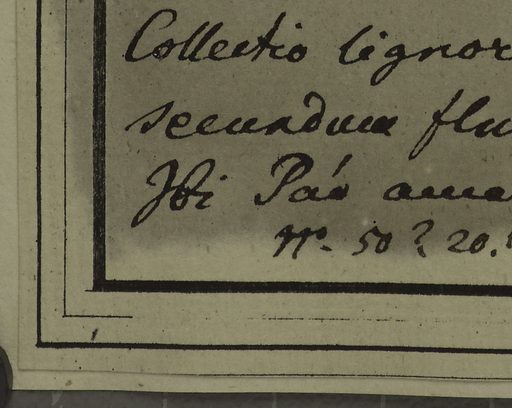 Collectio lignor
secundum flu
Ibi Páo ama
No. 50? 20.